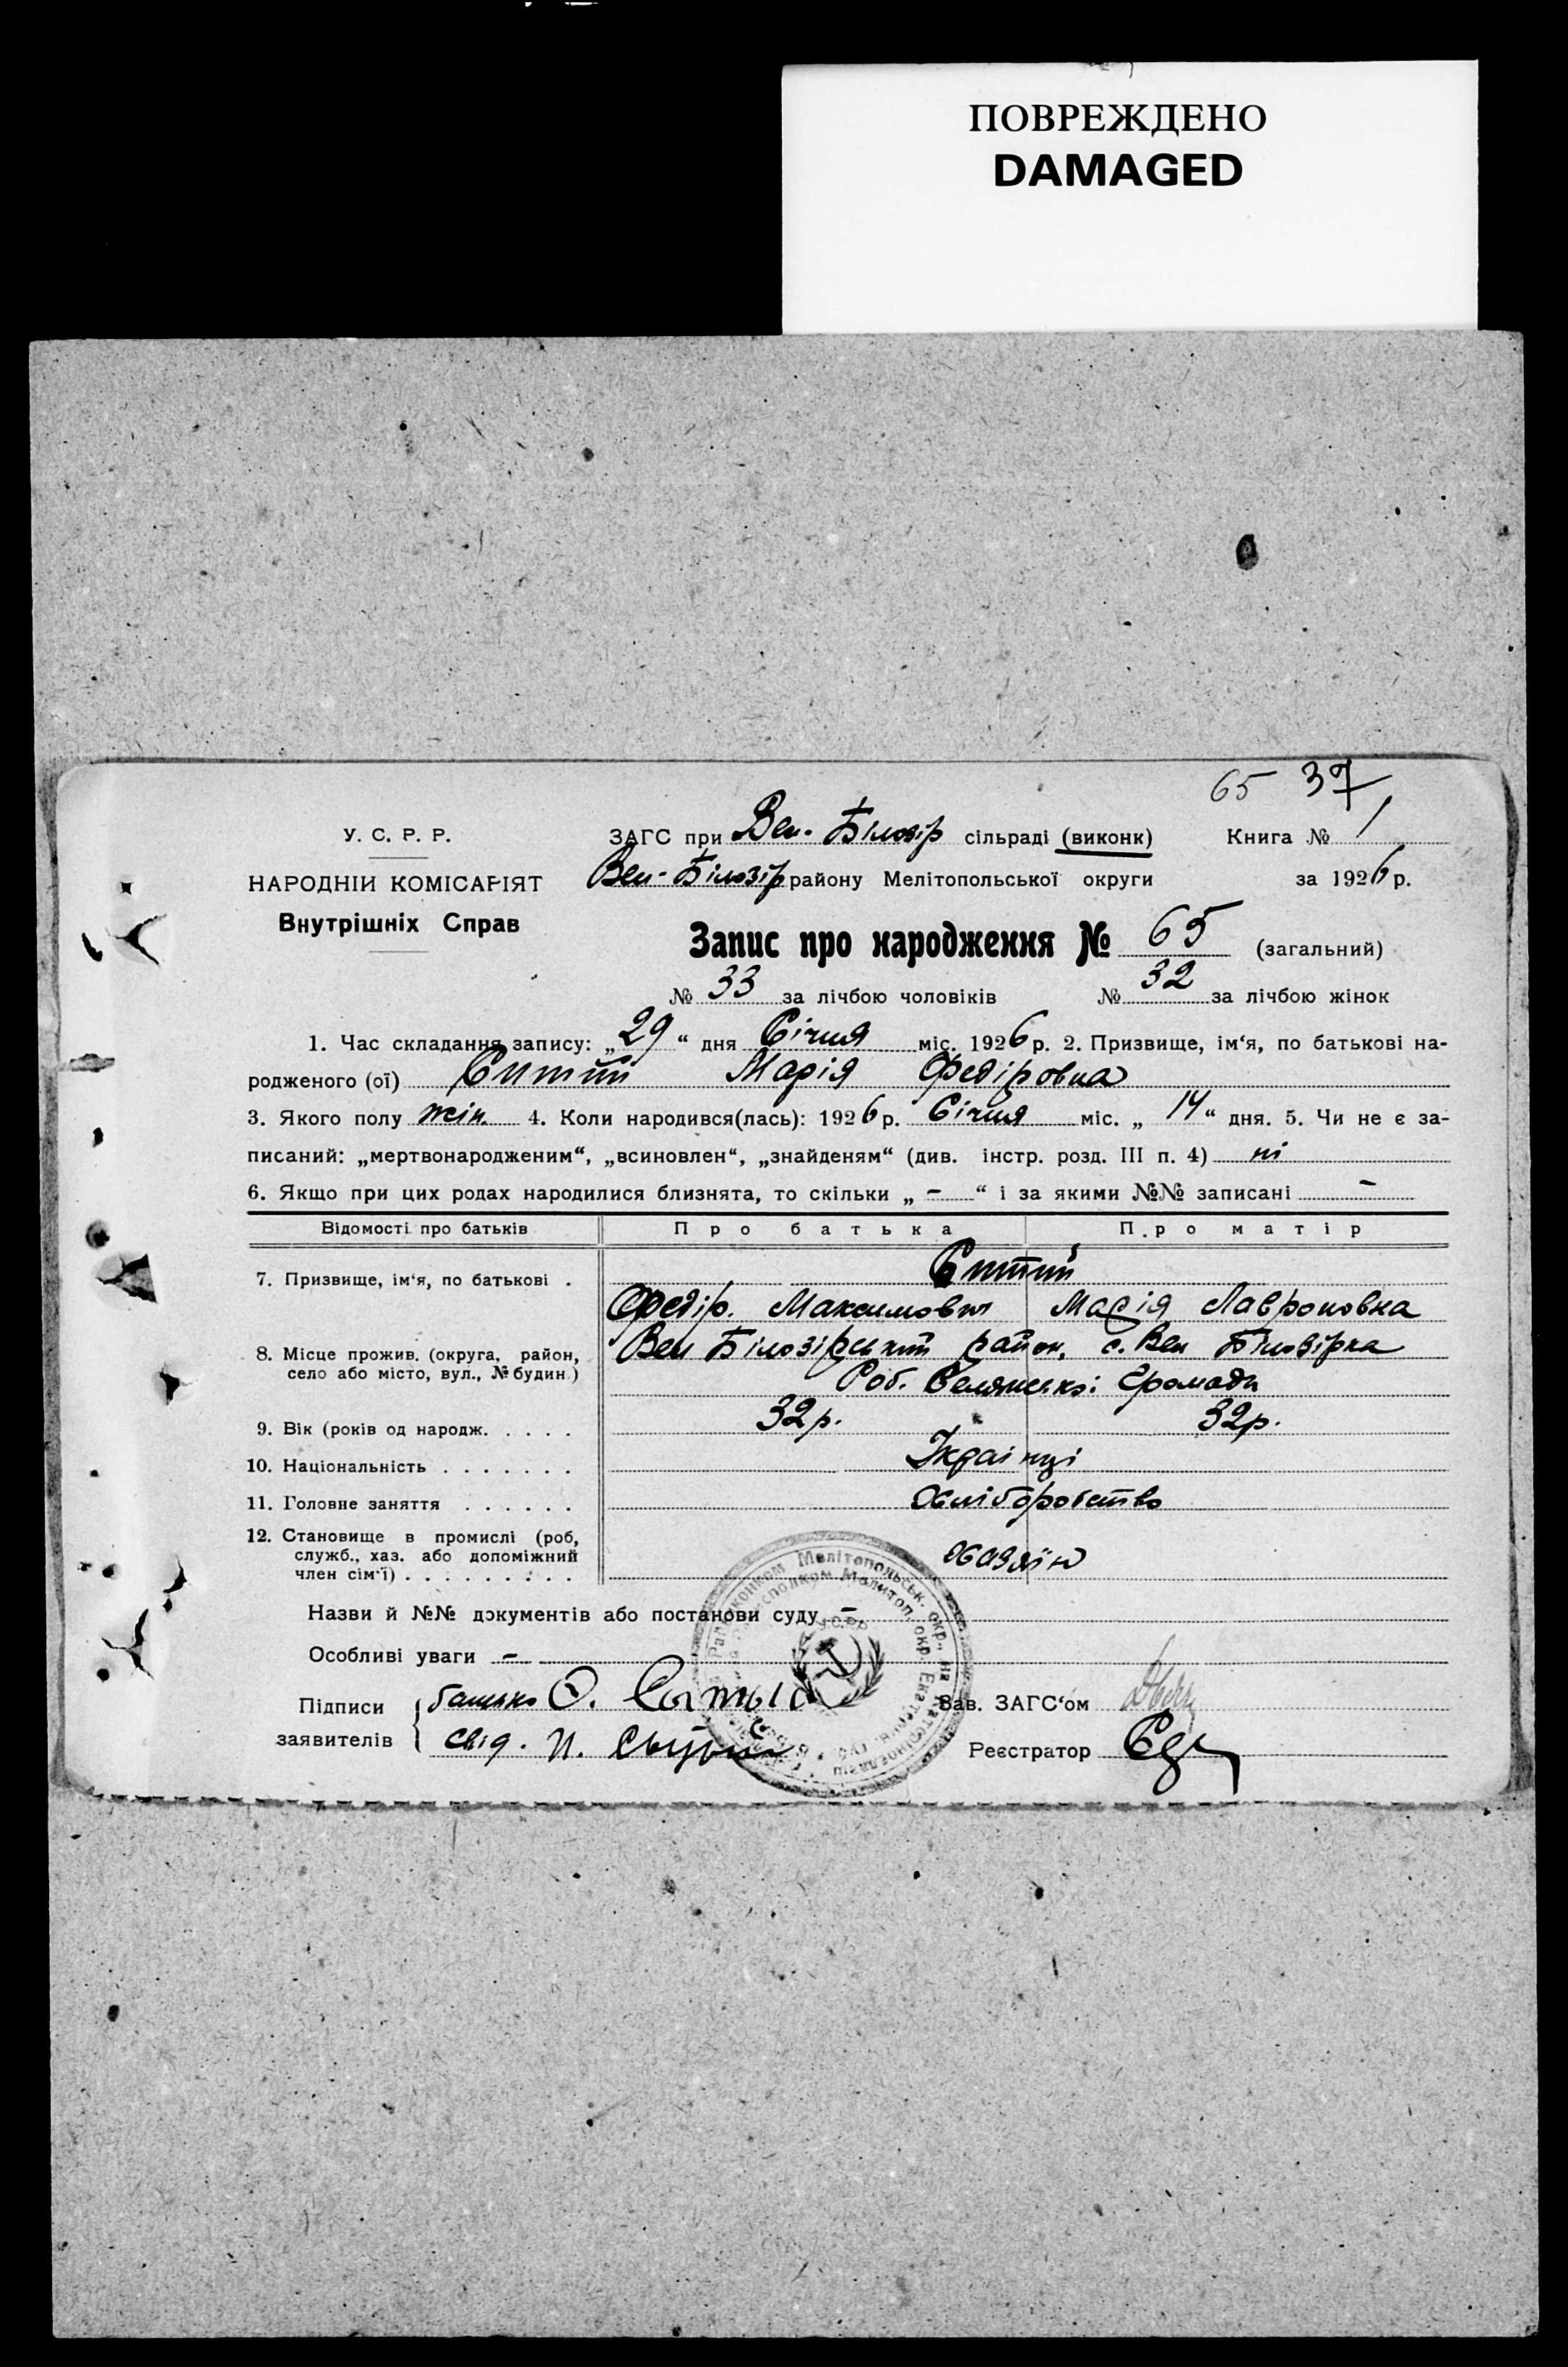 ПОВРЕЖДЕНО
DAMAGED
65 37
У. С. Р. Р.
НАРОДНІЙ КОМІСАРІЯТ
Внутрішніх Справ
ЗАГС при Вел-Білозір сільраді (виконк) Книга № 1
Вел-Білозір району Мелітопольської округи за 1926 р.
Запис про народження № 65 (загальний)
№ 33 за лічбою чоловіків № 32 за лічбою жінок
1. Час складання запису: „29“ дня Січня міс. 1926 р. 2. Призвище, ім‘я, по батькові на-
родженого (ої) Ситий Марія Федіровна
3. Якого полу жін. 4. Коли народився(лась): 1926 р. Січня міс. „14“ дня. 5. Чи не є за-
писаний: „мертвонародженим“, „всиновлен“, „знайденям“ (див. інстр. розд. III п. 4) ні
6. Якщо при цих родах народилися близнята, то скільки „-“ і за якими №№ записані -
Відомості про батьків Про батька Про матір
7. Призвище, ім‘я, по батькові . Ситий
Федір. Максимович Марія Лавроновна
8. Місце прожив. (округа, район, село або місто, вул., № будин.) Вел Білозірський район, с. Вел Білозірка
Роб. Селянської Громади
9. Вік (років од народж. . . . . 32 р. 32 р.
10. Національність . . . . . . . Українці
11. Головне заняття . . . . . . Хліборобство
12. Становище в промислі (роб, служб., хаз. або допоміжний член сім‘ї) . . . . . . . . . Хазяїн
Назви й №№ документів або постанови суду -.
Особливі уваги -
Підписи заявителів
батько
Свід. П.
Зав. ЗАГС‘ом
Реєстратор
У.С.Р.Р.
Мелітопольськ. окр., на Катеринославщ
Мелитоп. окр. Екатерин. губ.